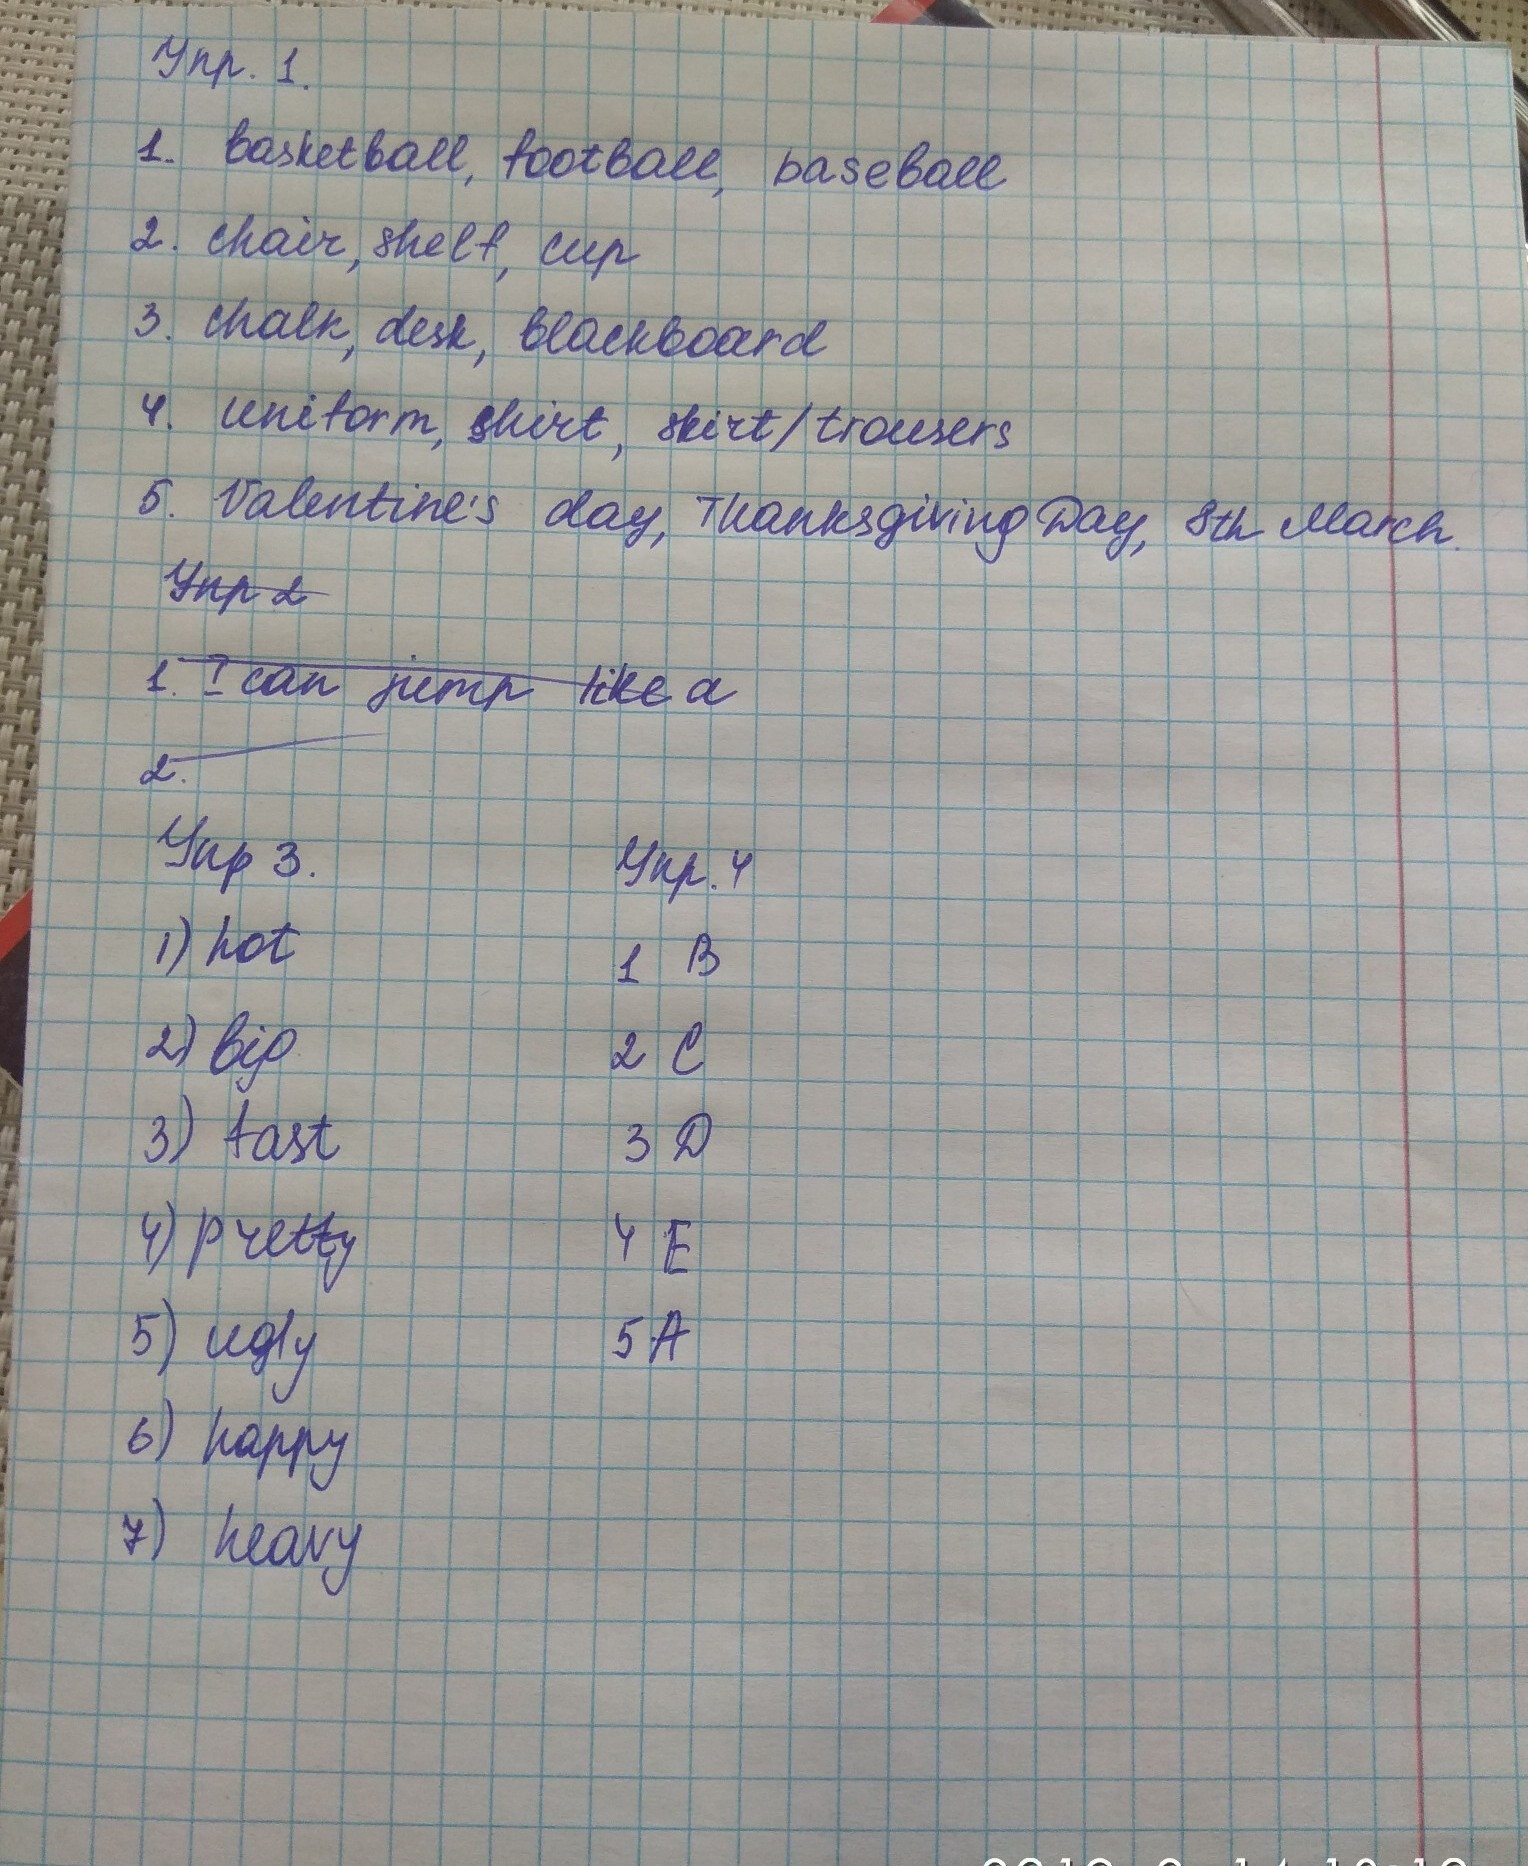 Упр. 1.
1. basketball, football, baseball
2. chair, shelf, cup
3. chalk, desk, blackboard
4. uniform, shirt, skirt/trousers
5. Valentine's day, Thanksgiving Day, 8th March.
Упр 2
1. I can jump like a
2.
Упр 3.
1) hot
2) big
3) fast
4) pretty
5) ugly
6) happy
7) heavy
Упр. 4
1 B
2 C
3 D
4 E
5 A